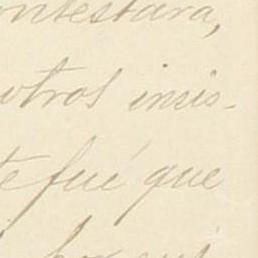 ontestara,
otros insis-
te fué que